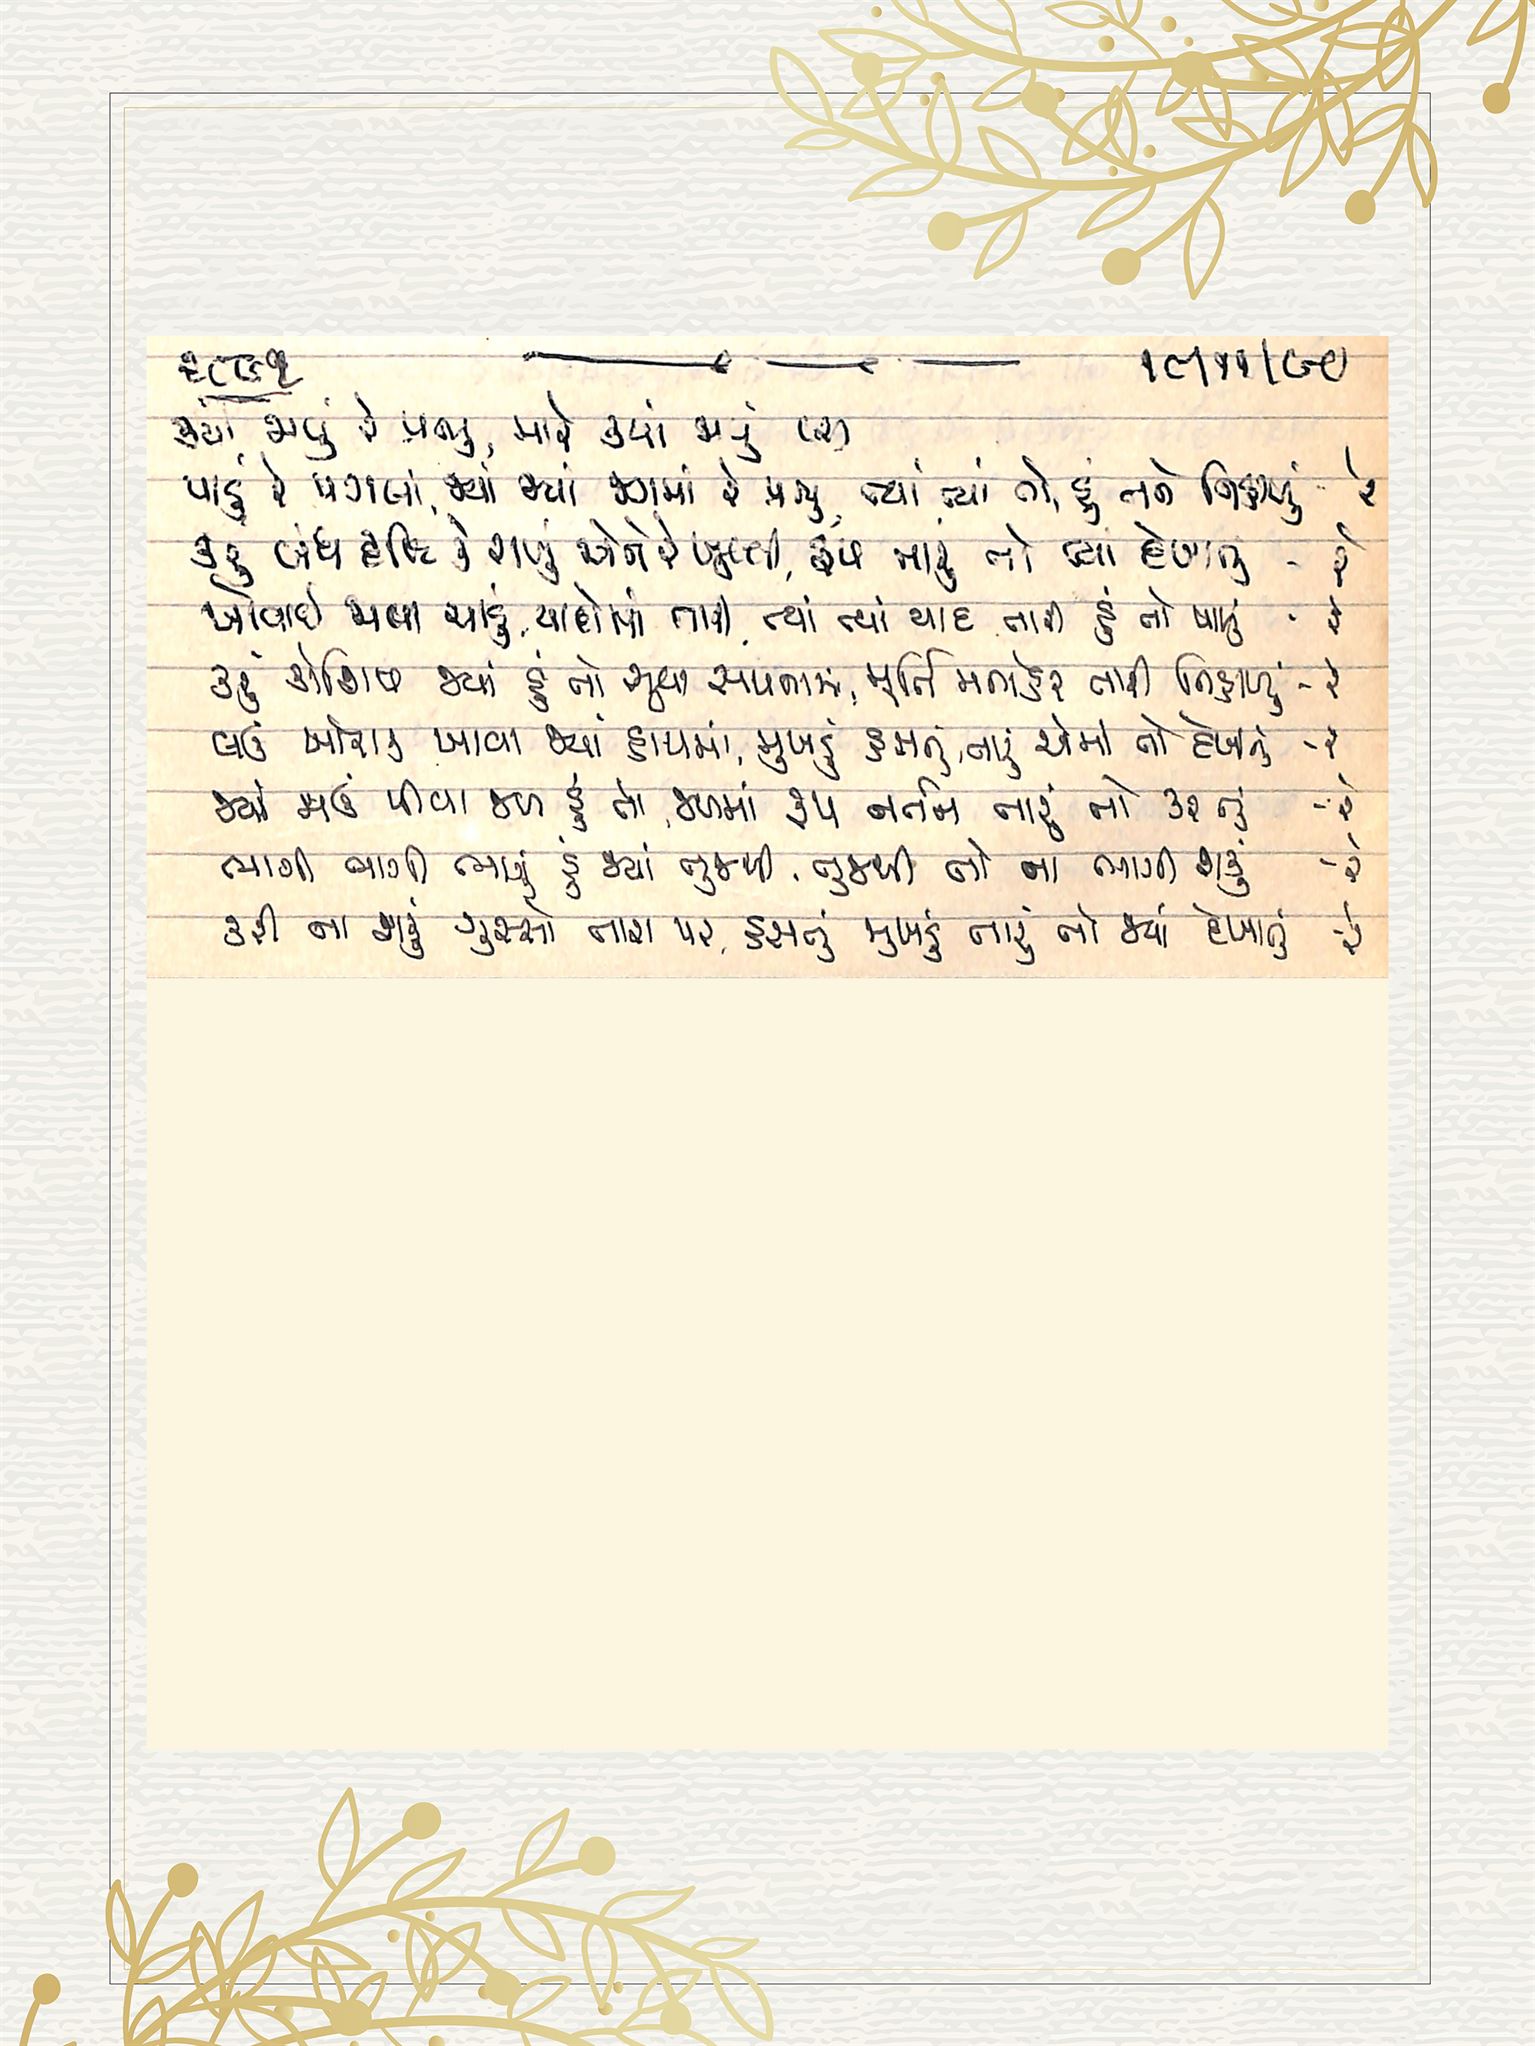 ૨૮૭૧ ૧૯/૧૧/૯૦
ક્યાં જાવું રે પ્રભુ, મારે ક્યાં જાવું (૨)
પાડું રે પગલાં, જ્યાં જ્યાં જગમાં રે પ્રભુ, ત્યાં ત્યાં તો, હું તને નિહાળું - રે
કરું બંધ દૃષ્ટિ કે રાખું એને રે ખુલ્લી, રૂપ તારું તો ત્યાં દેખાતું - રે
ખોવાઈ જાવા ચાહું, યાદોમાં તારી, ત્યાં ત્યાં યાદ તારી હું તો પામું - રે
કરું કોશિશ જ્યાં હું તો સૂવા સપનામાં, મૂર્તિ મનોહર તારી નિહાળું - રે
લઉં ખોરાક ખાવા જ્યાં હાથમાં, મુખડું હસતું, તારું એમાં તો દેખાતું - રે
જ્યાં જાઉં પીવા જળ હું તો, જળમાં રૂપ નર્તન તારું તો કરતું - રે
ભાગી ભાગી ભાગું હું જ્યાં તુજથી, તુજથી તો ના ભાગી શકું - રે
કરી ના શકું ગુસ્સો તારા પર, હસતું મુખડું તારું તો જ્યાં દેખાતું - રે